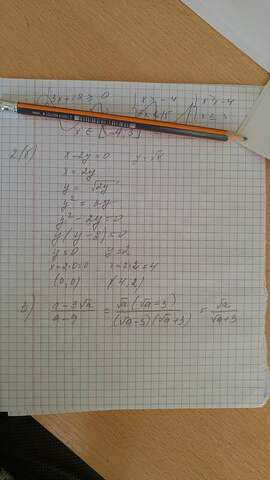 x ∈ [-4; 3]
2(б) x - 2y = 0 y = √x
x = 2y
y = √2y
y² = 2y
y² - 2y = 0
y(y - 2) = 0
y = 0 y = 2
x = 2·0 = 0 x = 2·2 = 4
(0,0) (4,2)
в) (a - 3√a)/(a - 9) = (√a(√a - 3))/((√a - 3)(√a + 3)) = √a/(√a + 3)